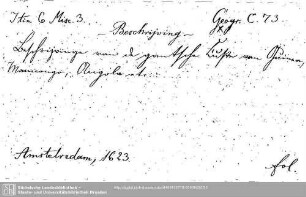 Itin 6 Misc. 3. Geogr. C. 73
Beschrijving
Beschrijvinge van de gantsche Custe van Guinea,
Manicongo, Angola etc.
Amstelredam, 1623. fol.
Sächsische Landesbibliothek -
Staats- und Universitätsbibliothek Dresden